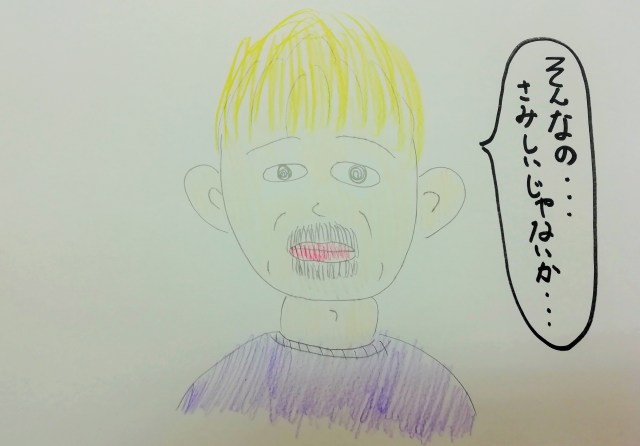 そんなの・・・
さみしいじゃないか・・・